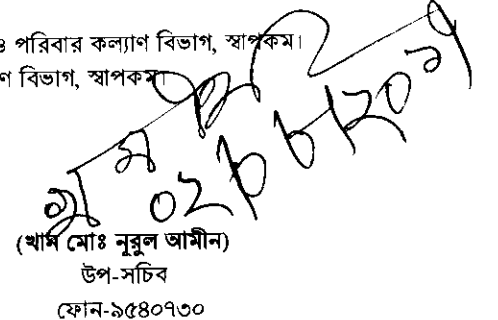 ঃ পরিবার কল্যাণ বিভাগ, স্বাপকম।
ণ বিভাগ, স্বাপকম।
(খান মোঃ নূরুল আমীন)
উপ-সচিব
ফোন-৯৫৪০৭৩০